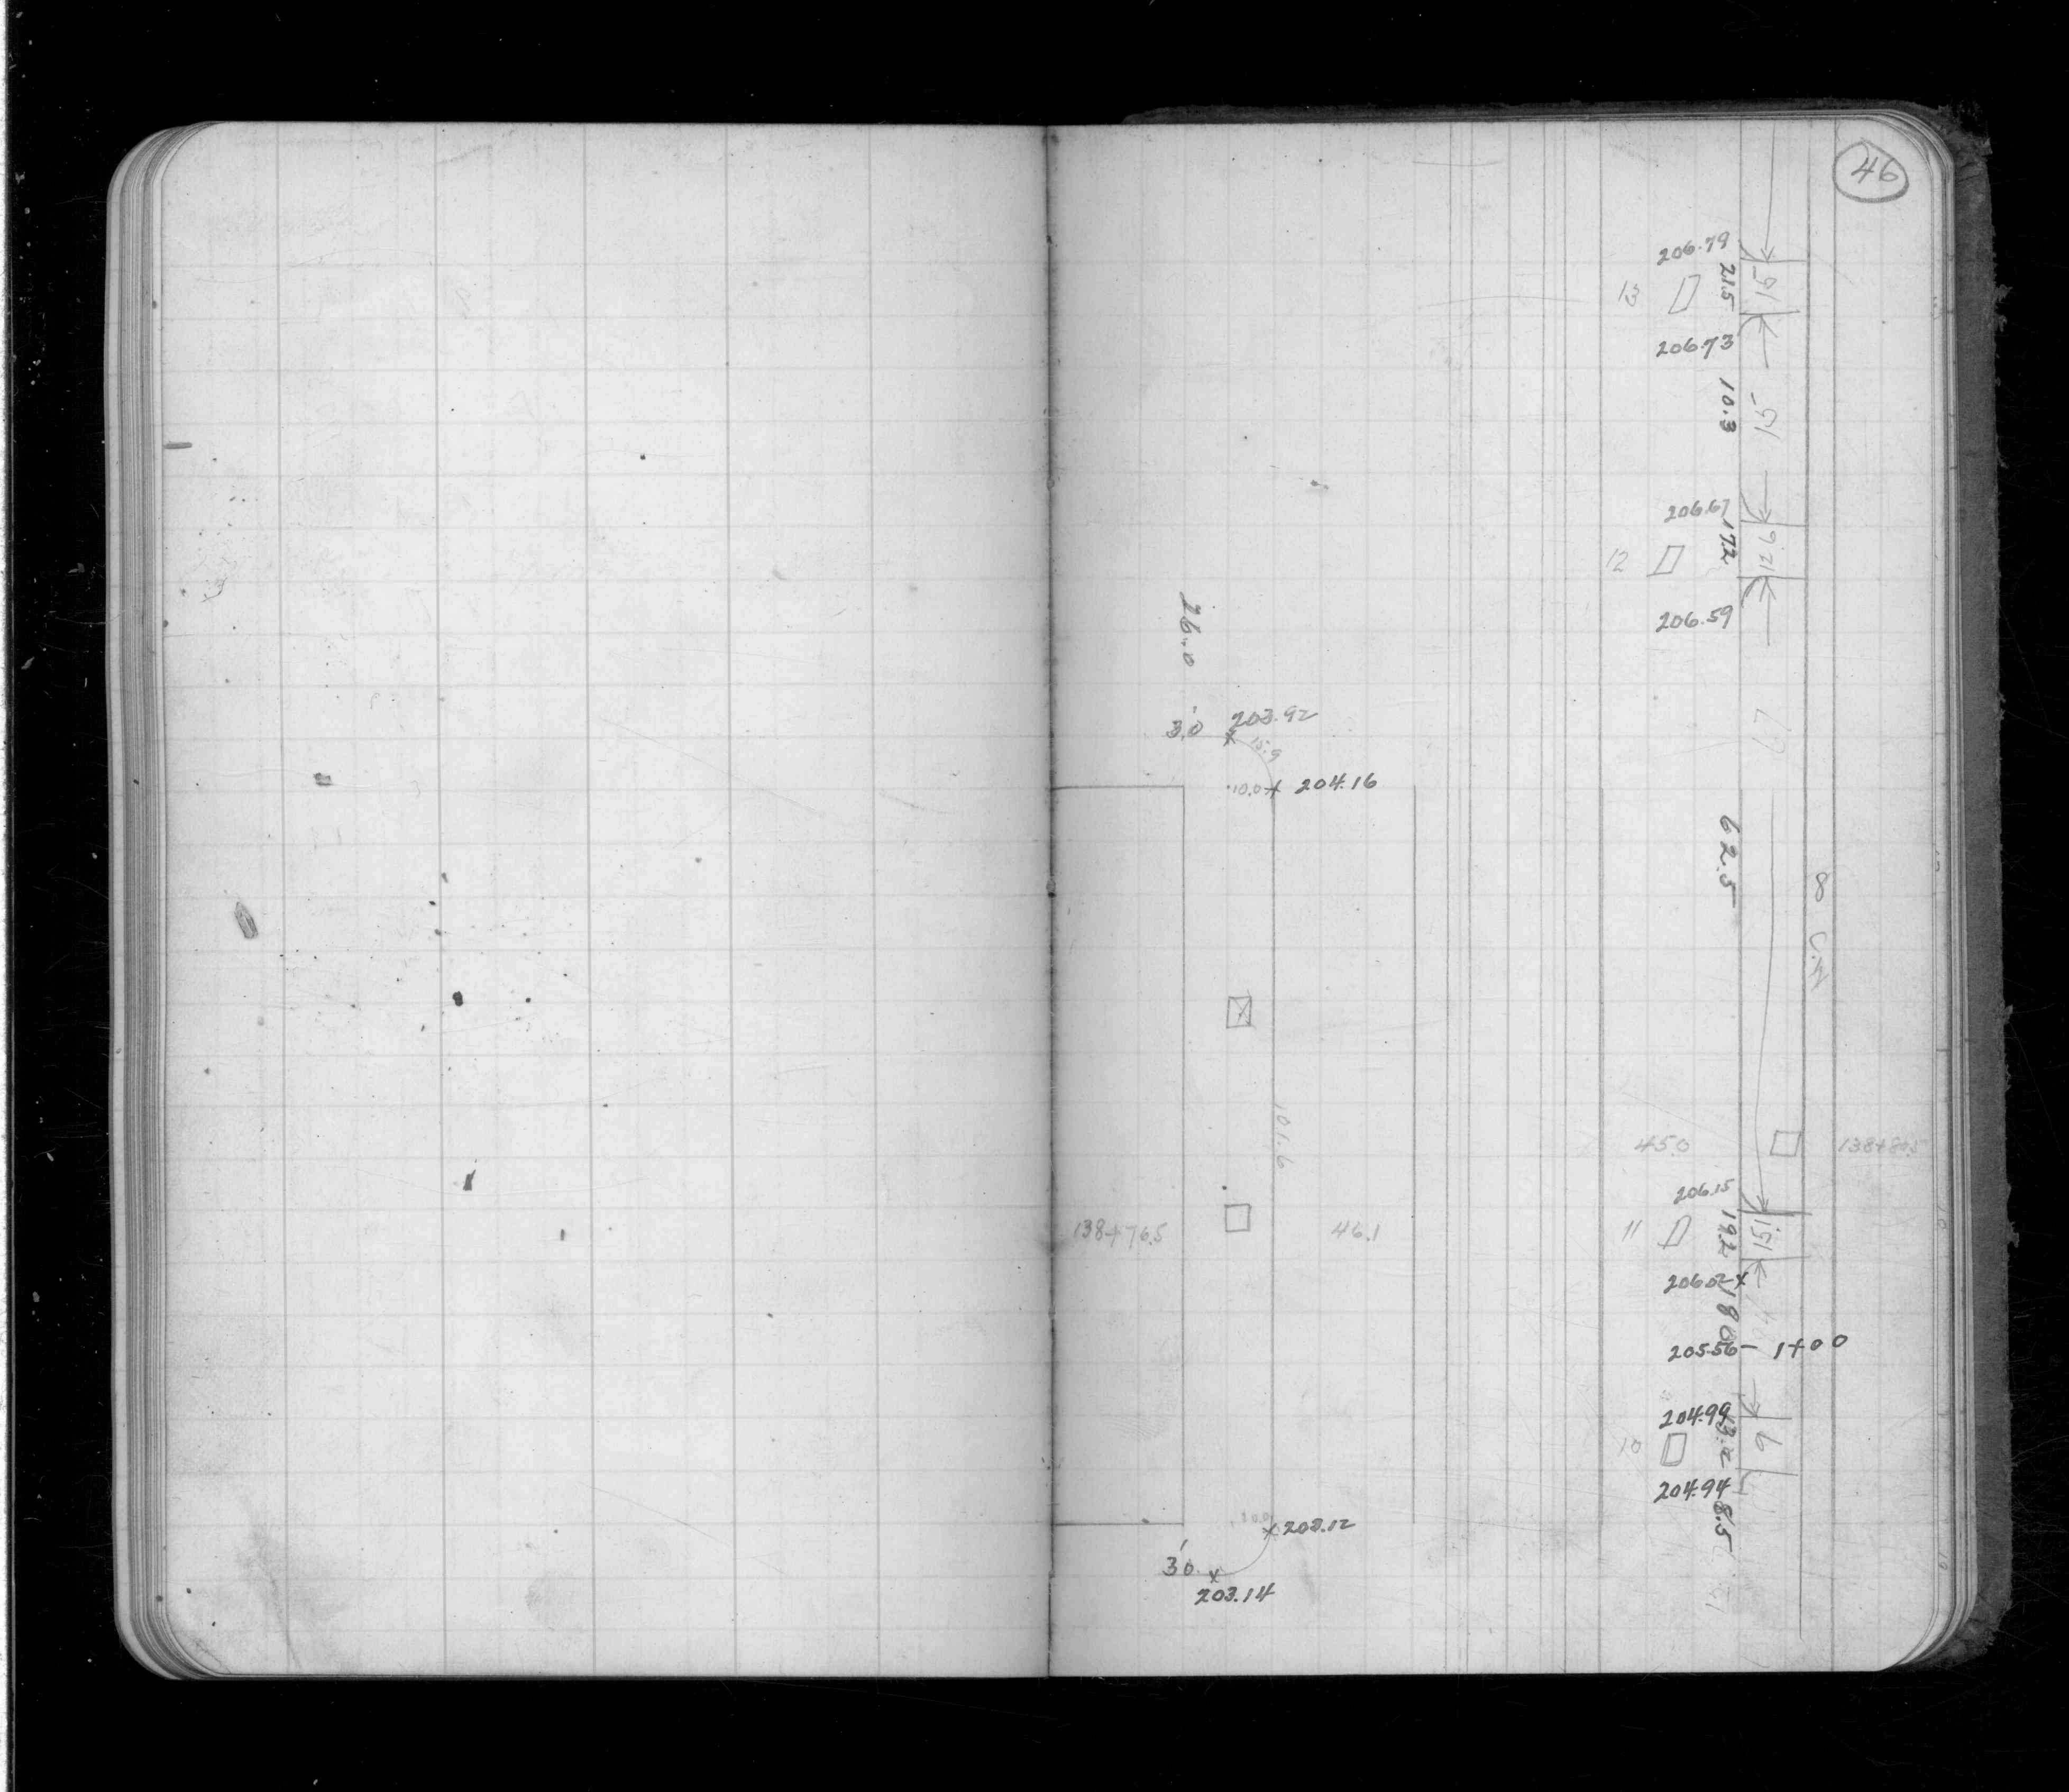 46
206.79
13
21.5
15
206.73
10.3
15
206.67
12
17.2
12.6
206.59
26.0
3.0
203.92
15.9
10.0
204.16
67
62.5
8 C.W
101.6
45.0
138+80.5
206.15
138+76.5
46.1
11
19.2
15.1
206.02
18.0
205.56
1+00
204.99
10
13.2
9
204.94
8.5
10.0
203.12
3.0
203.14